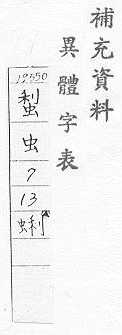 補充資料
異體字表
19350
蜊
虫
7
13
蜊